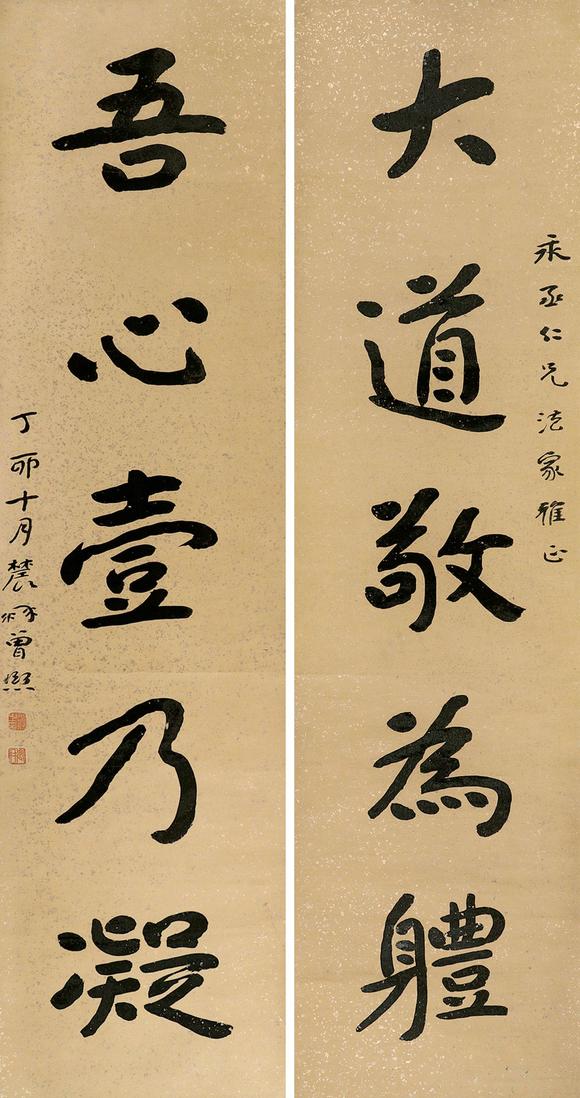 丞仁兄法家雅正
大道敬為軆
吾心壹乃凝
丁卯十月農髯曾熙